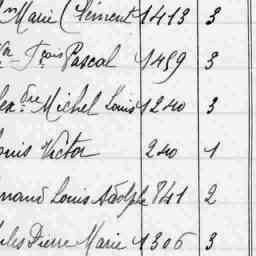 Marie Clément 1413 3
Fçois Pascal 1459 3
Michel Louis 1240 3
Louis Victor 240 1
Louis Adolphe 841 2
Jules Pierre Marie 1306 3